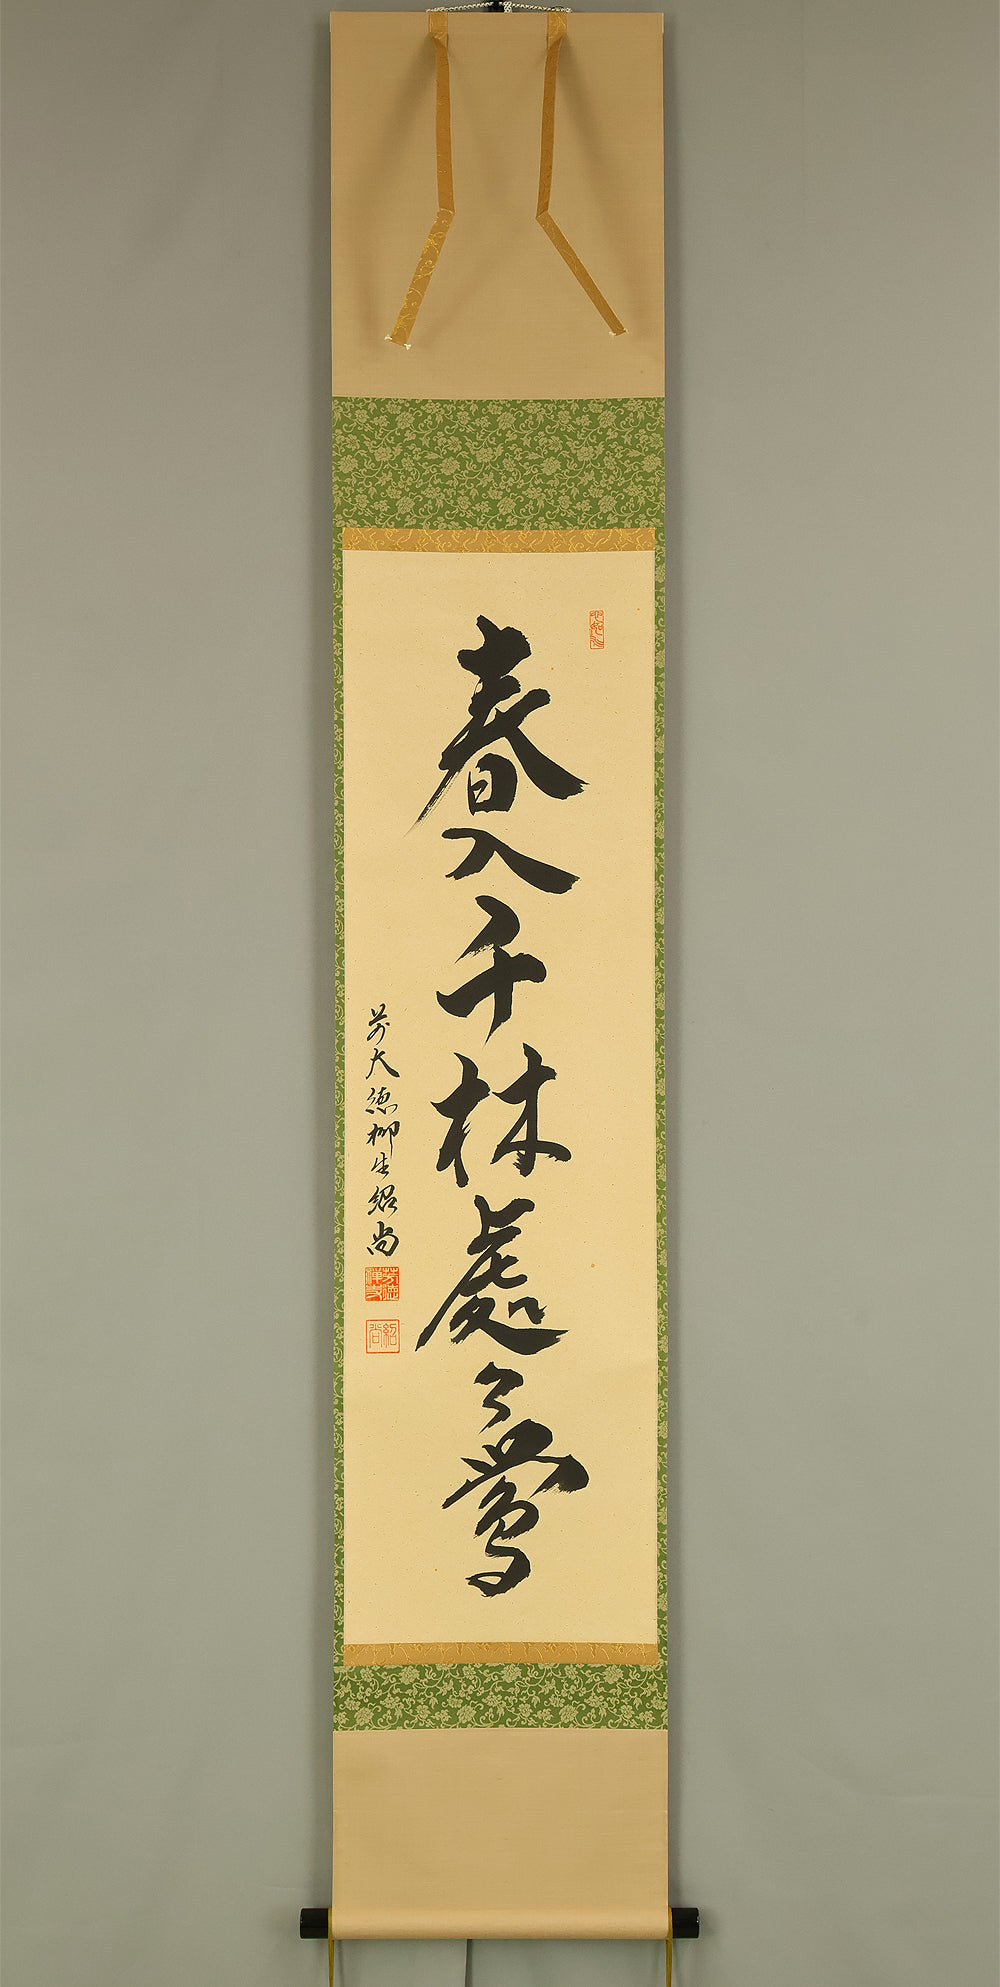 春入千林處々鶯
前大徳柳生紹尚
紹尚